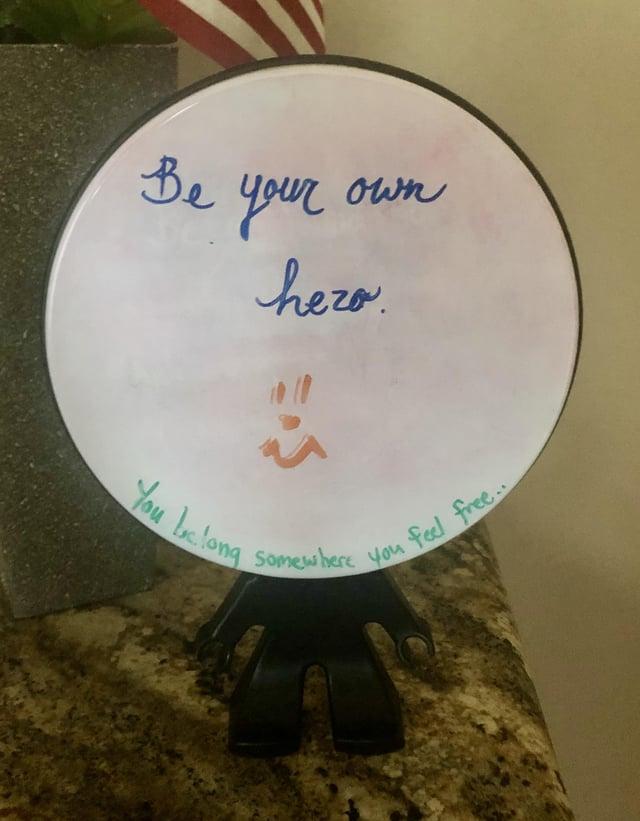 Be your own
hero.
You belong somewhere you feel free..